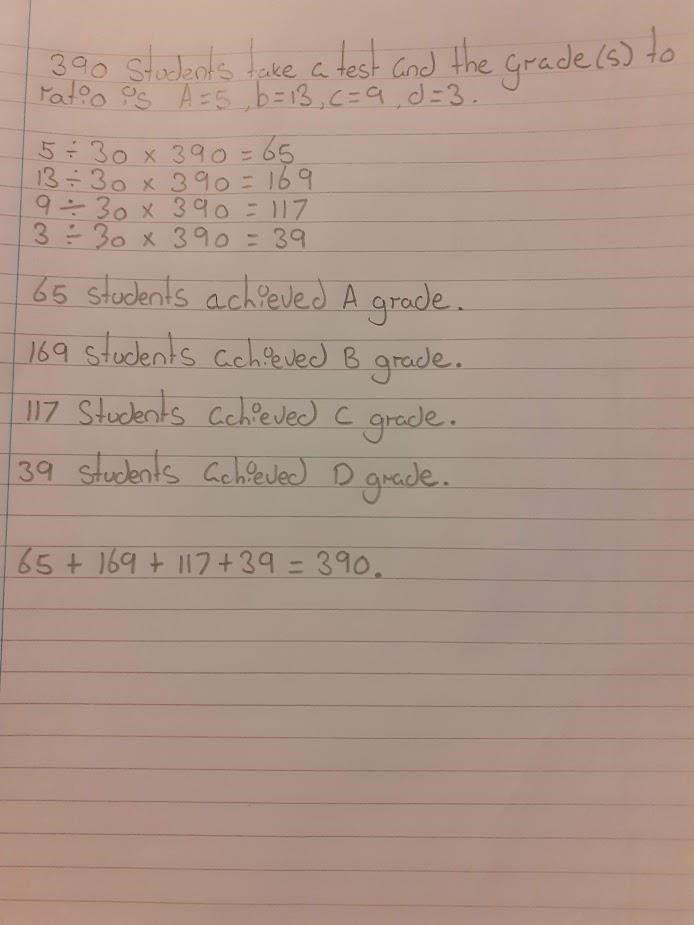 390 Students take a test and the grade(s) to
ratio is A=5, b=13, c=9, d=3.
5 ÷ 30 × 390 = 65
13 ÷ 30 × 390 = 169
9 ÷ 30 × 390 = 117
3 ÷ 30 × 390 = 39
65 students achieved A grade.
169 students achieved B grade.
117 Students achieved C grade.
39 students achieved D grade.
65 + 169 + 117 + 39 = 390.